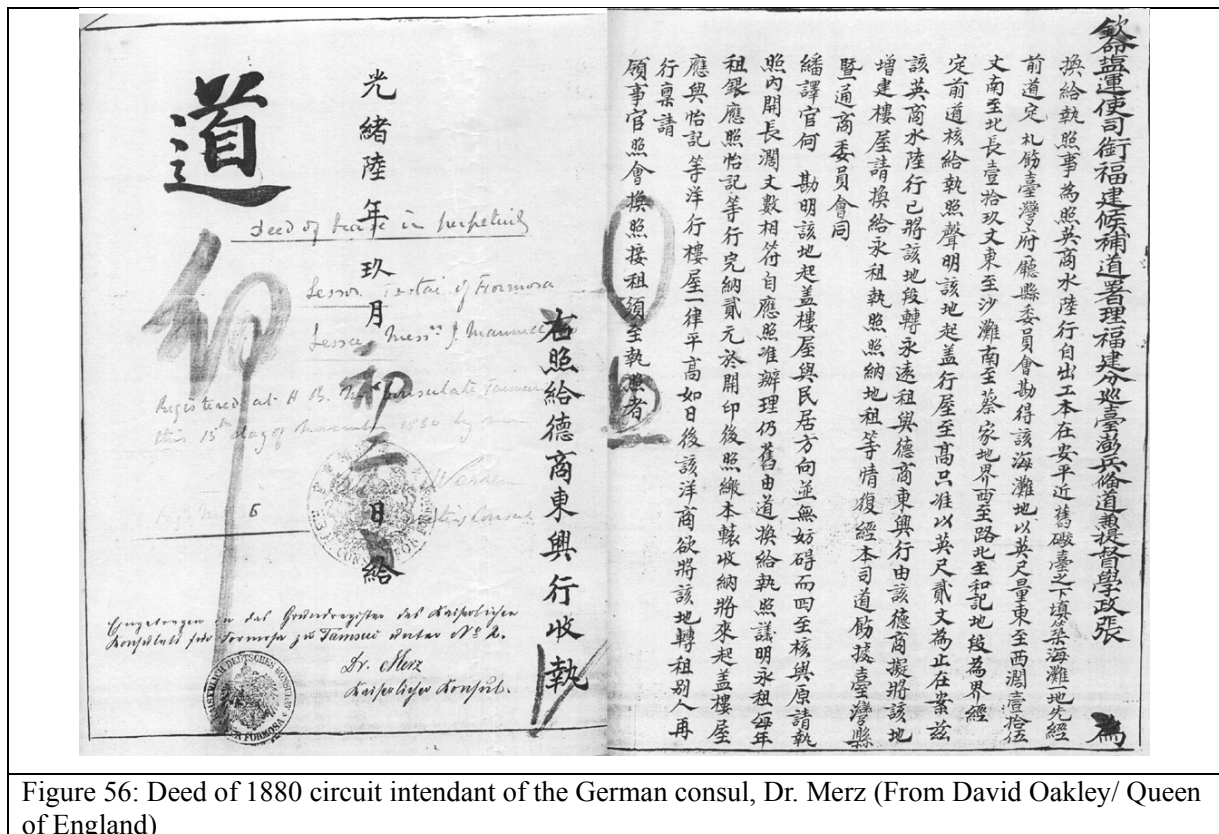 欽命鹽運使司銜福建候補道署理福建分巡臺澎兵備道兼提督學政張 為
換給執照事為照英商水陸行自出工本在安平近舊礮臺之下填築海灘地先經
前道定札飭臺灣府廳縣委員會勘得該海灘地以英尺量東至西濶壹拾伍
丈南至北長壹拾玖丈東至沙灘南至蔡家地界西至路北至和記地段為界經
定前道核給執照聲明該地起盖行屋至高只准以英尺貳丈為止在案茲
該英商水陸行已將該地段轉永遠租與德商東興行由該德商擬將該地
增建樓屋請換給永租執照照納地租等情復經本司道飭據臺灣縣
暨通商委員會同
繙譯官何 勘明該地起盖樓屋與民居方向並無妨碍而四至核與原請執
照內開長濶丈數相符自應照准辦理仍舊由道換給執照議明永租每年
租銀應照怡記等行完納貳元於開印後照繳本轅收納將來起盖樓屋
應與怡記等洋行樓屋一律平高如日後該洋商欲將該地轉租別人再
行稟請
領事官照會換照接租須至執照者
右照給德商東興行收執
光緒陸年玖月初二日給
道
Deed of Lease in perpetuity
Lessor Taotai of Formosa
Lessee Messrs J. Mannich
Registered at H. B. M. Consulate Tainan
this 15th day of November 1880 by me
Warren
Acting Consul
Eingetragen in das Grundregister des Kaiserlichen
Konsulats für Formosa zu Tamsui unter No 2.
Dr. Merz
Kaiserlicher Konsul.
Figure 56: Deed of 1880 circuit intendant of the German consul, Dr. Merz (From David Oakley/ Queen
of England)